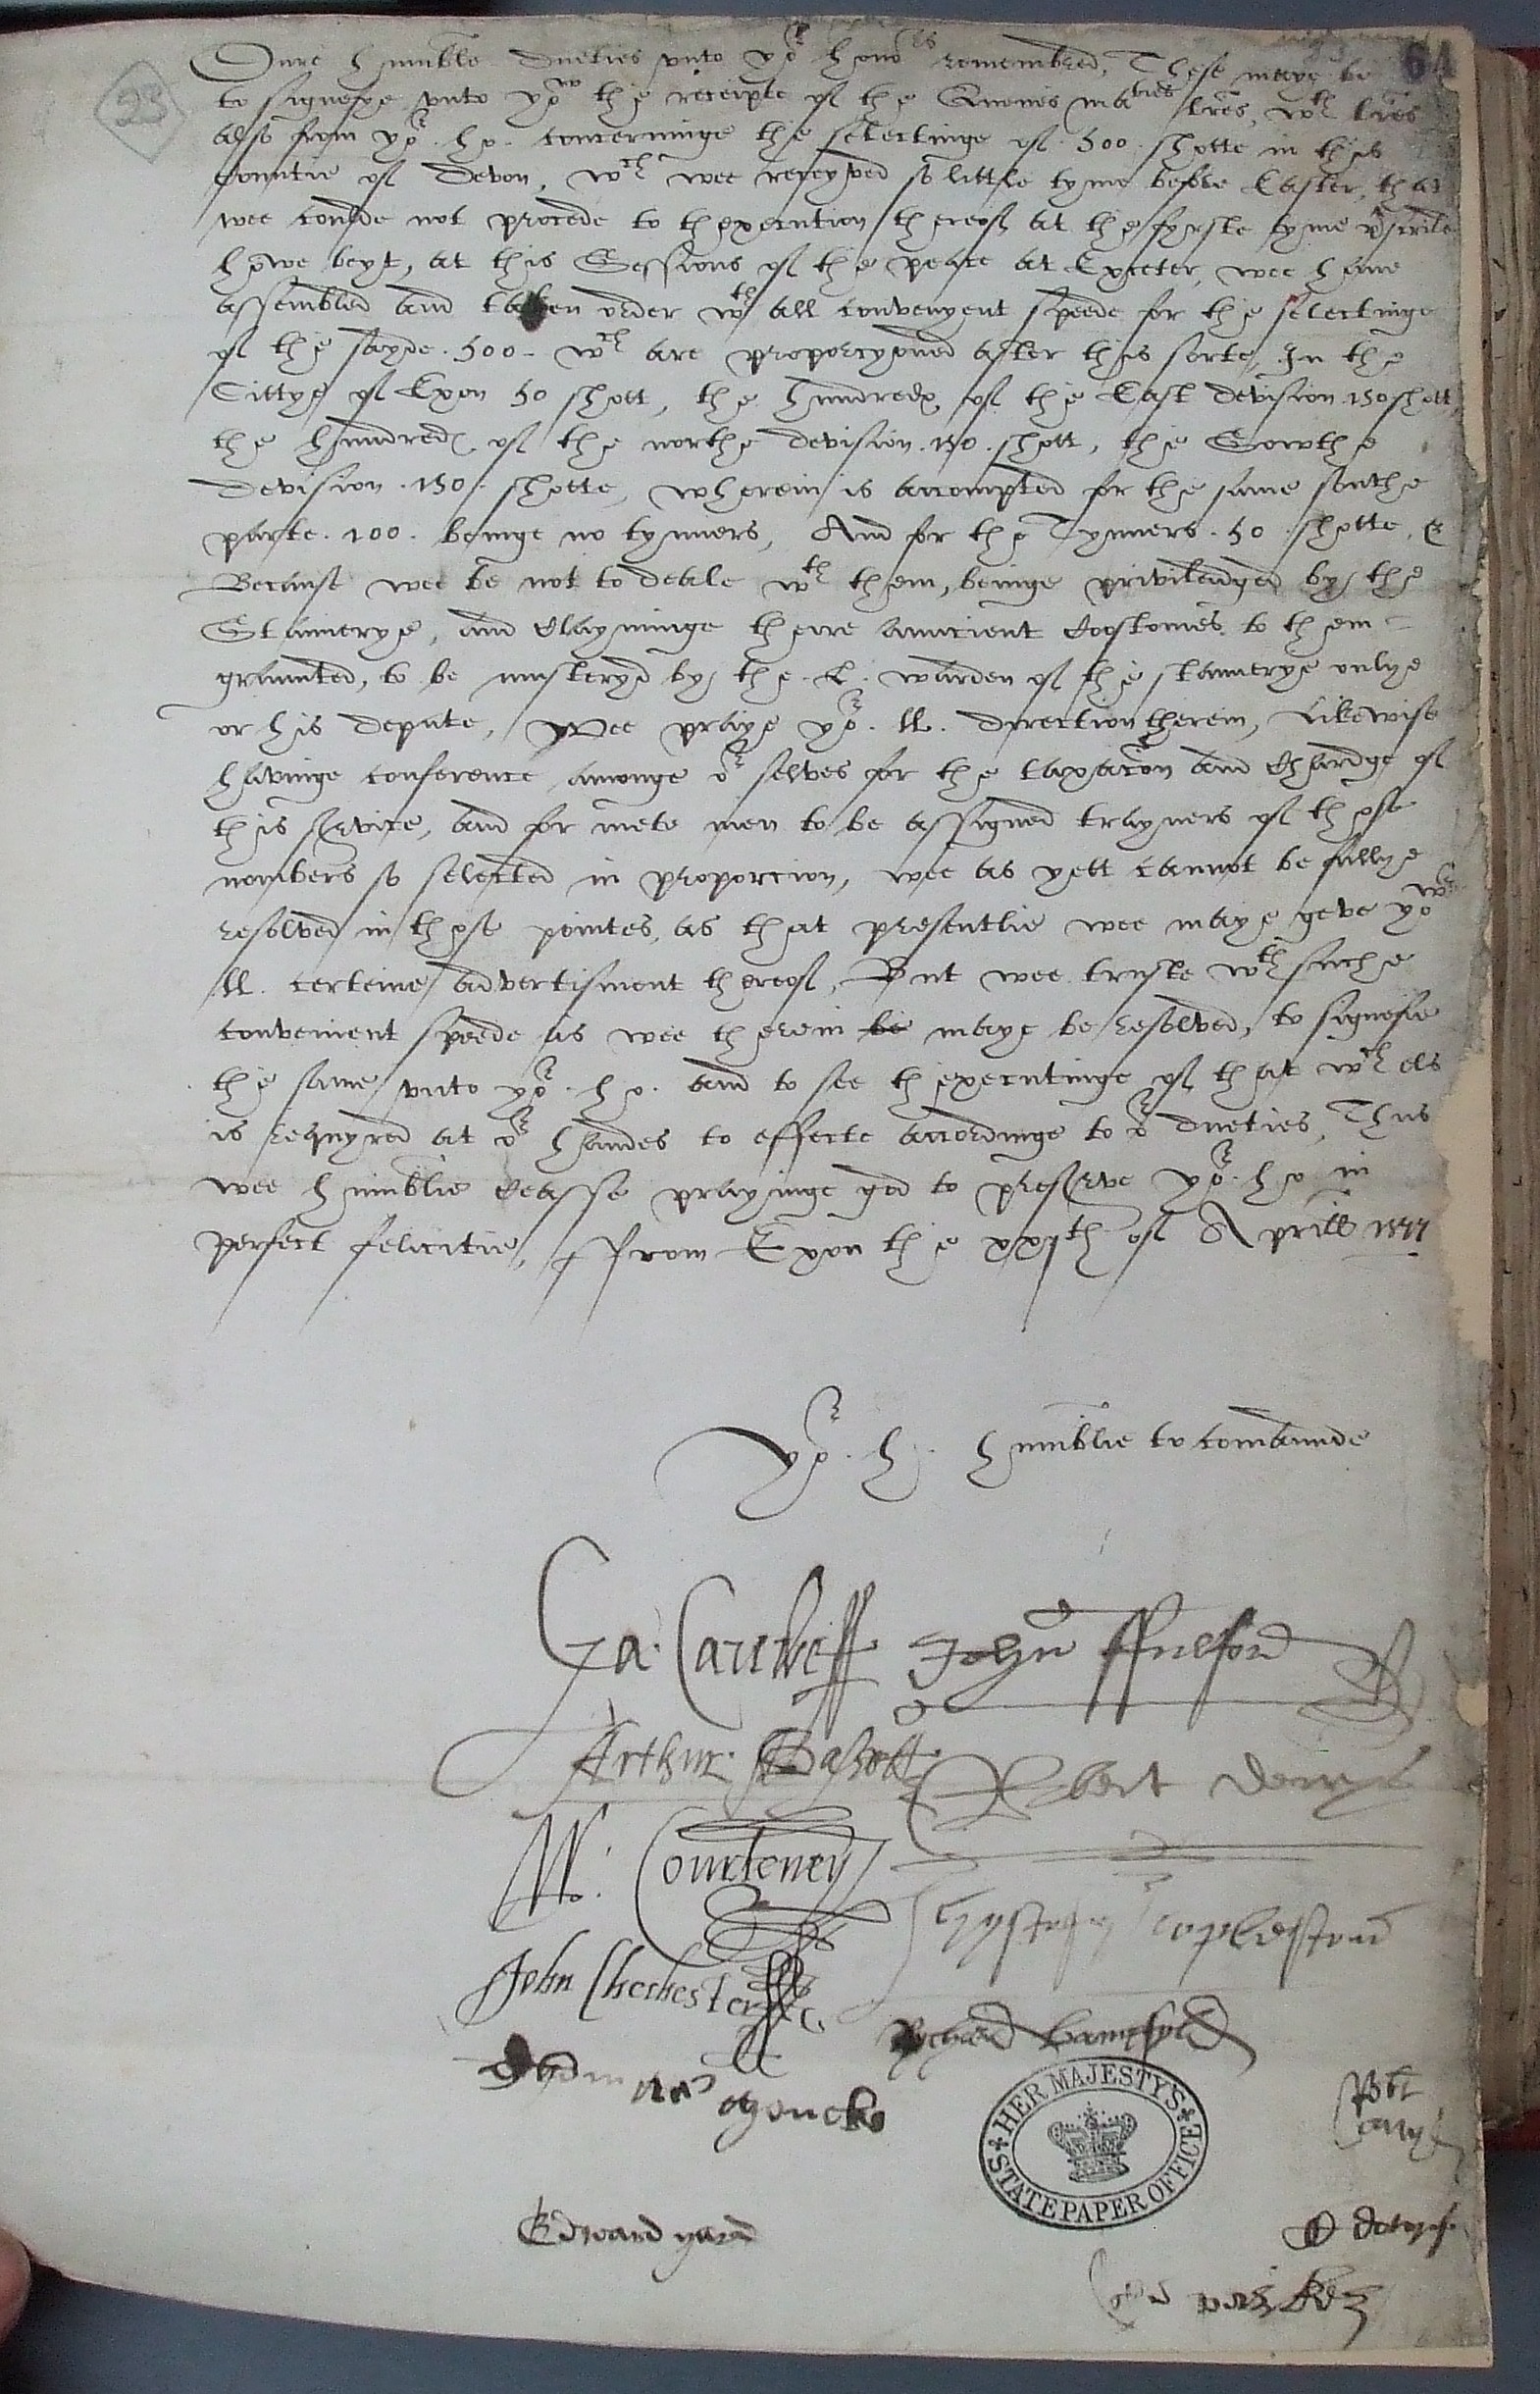 64
23
Oure humble dueties unto yor honors remembred, These maye be
to signefye unto yow the receipte of the Quenes maties lres, wth lres
also from yor . ho . concerninge the selectinge of . 500 . shotte in this
countie of Devon, wch wee receyved so little tyme before Easter, that
wee coulde not procede to thexecution thereof at the fyrste tyme
howe beyt, at this Sessions of the peace at Exceter, wee have
assembled and taken order wth all convenyent speede for the selectinge
of the sayde . 500 . wch are proporcyoned after this sorte, In the
Cittye of Exon 50 shott, the hundreds of the East devision 150 shott,
the hundreds of the northe devision . 150 . shott, the Sowthe
devision . 150 . shotte, wherein is accompted for the same southe
parte . 100 . beinge no tynners, And for the Tynners . 50 . shotte, &
Because wee be not to deale wth them, beinge priviledged by the
Stannerye, and clayminge theire auncient coostomes to them
graunted, to be musteryd by the . L . warden of the stannerye onlye
or his depute, Wee praye yor . ll . direction therein, Likewise
havinge conference amonge or selves for the taxacon and chardge of
this service, and for mete men to be assigned trayners of those
nombers so selected in proporcion, wee as yett cannot be fullye
resolved in those pointes, as that presentlie wee maye geve yor
ll . certeine advertisment thereof, But wee truste wth suche
convenient speede as wee therein be maye be resolved, to signefie
the same unto yor . ho . and to see thexecutinge of that wch els
is requyred at or handes to effecte accordinge to or dueties, Thus
wee humblie ceasse prayinge god to preserve yor . ho in
perfect felicitie, ffrom Exon the xxjth of Aprill 1577
yor . h . humblie to comaunde
Ga. Carewe John ffulford
Arthur Bassett Robert Denys
W. Courteney Coplestone
John Chechester Rychard bampfyld
Robt Cary
Edward yard
HER MAJESTY'S STATE PAPER OFFICE